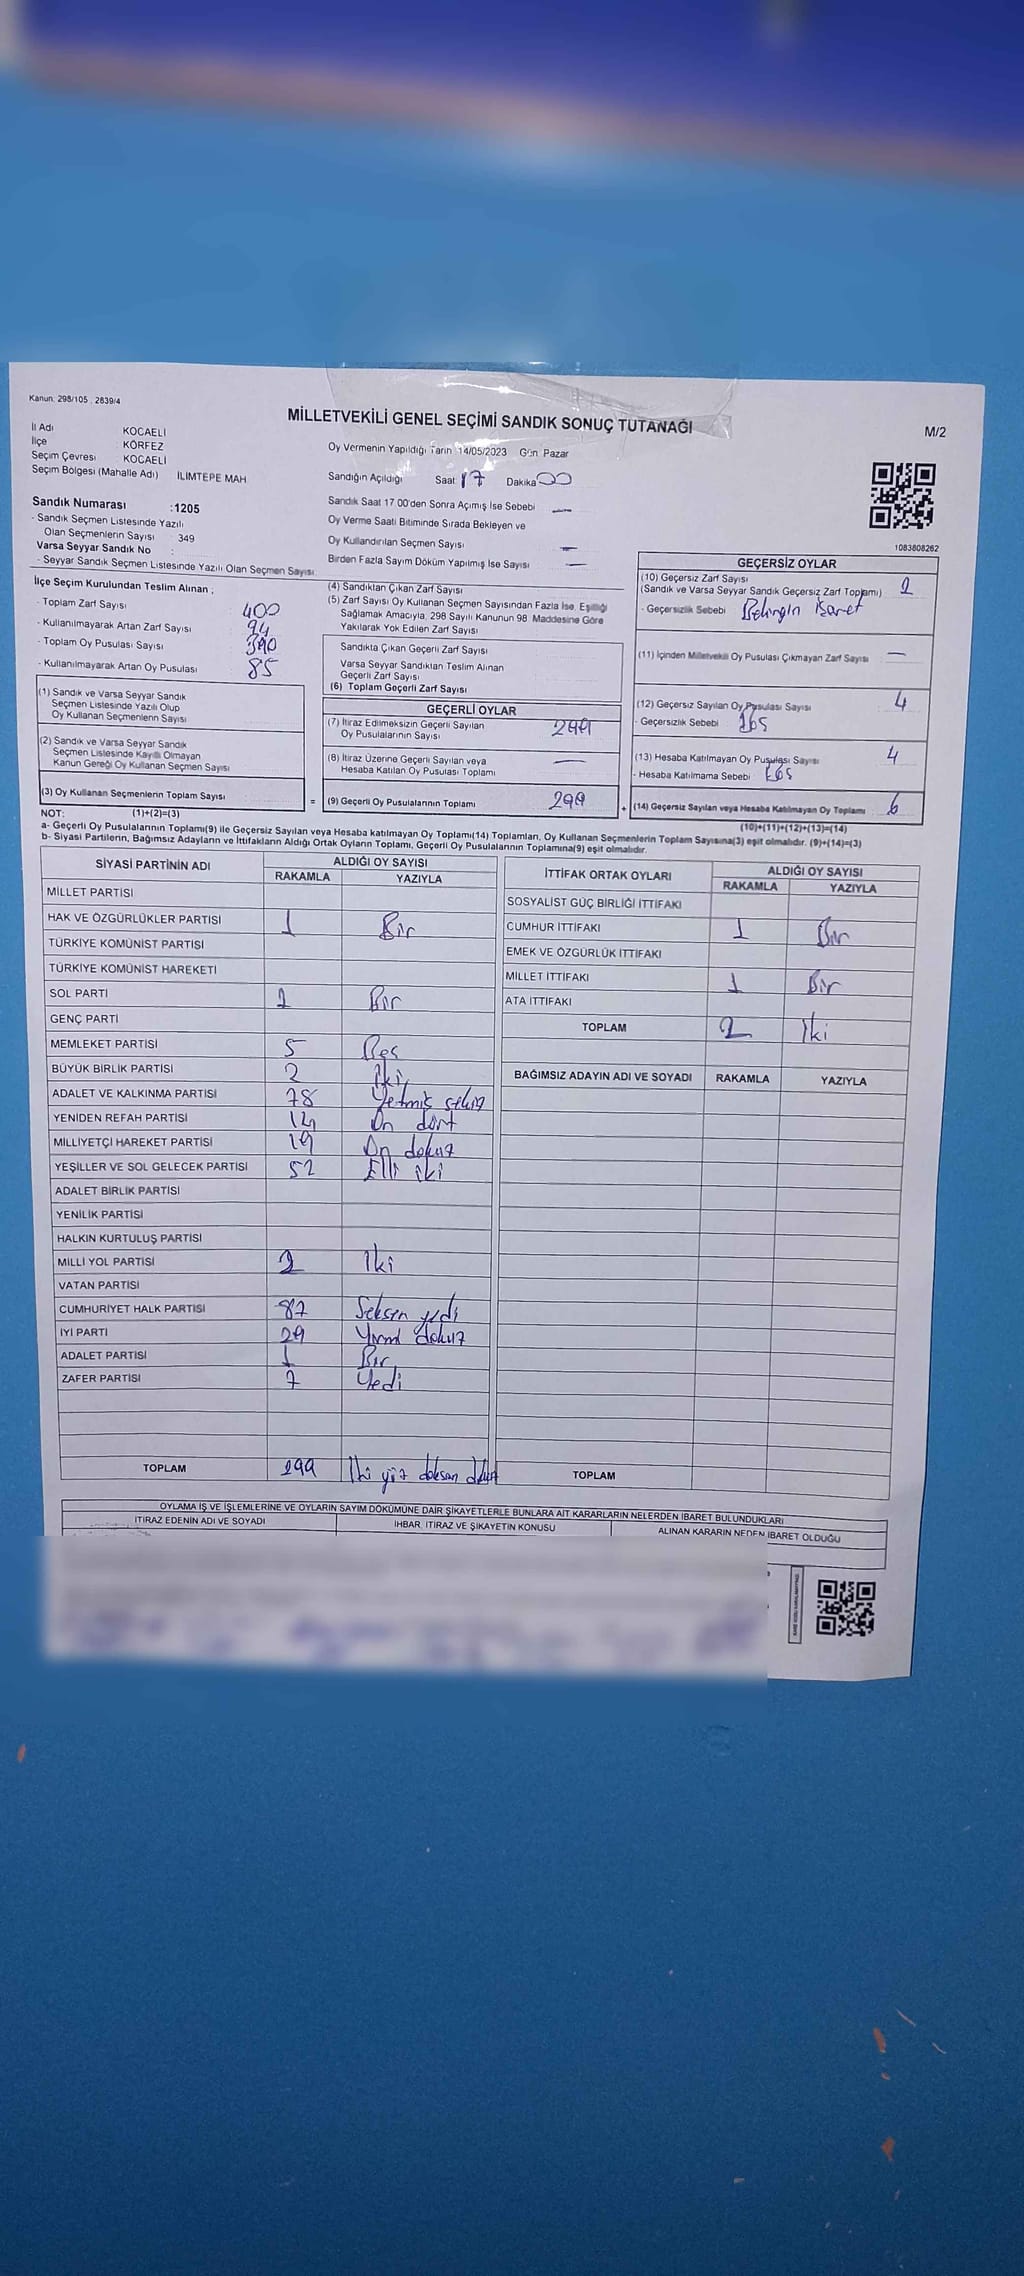 Kanun: 298/105, 2839/4
MİLLETVEKİLİ GENEL SEÇİMİ SANDIK SONUÇ TUTANAĞI
M/2
İl Adı KOCAELİ
İlçe KÖRFEZ
Seçim Çevresi KOCAELİ
Seçim Bölgesi (Mahalle Adı) İLİMTEPE MAH
Sandık Numarası :1205
- Sandık Seçmen Listesinde Yazılı
Olan Seçmenlerin Sayısı : 349
Varsa Seyyar Sandık No :
- Seyyar Sandık Seçmen Listesinde Yazılı Olan Seçmen Sayısı
Oy Vermenin Yapıldığı Tarih 14/05/2023 Gün Pazar
Sandığın Açıldığı Saat 17 Dakika 00
Sandık Saat 17 00'den Sonra Açımış İse Sebebi —
Oy Verme Saati Bitiminde Sırada Bekleyen ve
Oy Kullandırılan Seçmen Sayısı —
Birden Fazla Sayım Döküm Yapılmış İse Sayısı —
1083808262
İlçe Seçim Kurulundan Teslim Alınan ;
- Toplam Zarf Sayısı 400
- Kullanılmayarak Artan Zarf Sayısı 94
- Toplam Oy Pusulası Sayısı 390
- Kullanılmayarak Artan Oy Pusulası 85
(1) Sandık ve Varsa Seyyar Sandık
Seçmen Listesinde Yazılı Olup
Oy Kullanan Seçmenlerin Sayısı
(2) Sandık ve Varsa Seyyar Sandık
Seçmen Listesinde Kayıtlı Olmayan
Kanun Gereği Oy Kullanan Seçmen Sayısı
(3) Oy Kullanan Seçmenlerin Toplam Sayısı
(4) Sandıktan Çıkan Zarf Sayısı
(5) Zarf Sayısı Oy Kullanan Seçmen Sayısından Fazla İse, Eşitliği
Sağlamak Amacıyla, 298 Sayılı Kanunun 98. Maddesine Göre
Yakılarak Yok Edilen Zarf Sayısı
Sandıkta Çıkan Geçerli Zarf Sayısı
Varsa Seyyar Sandıktan Teslim Alınan
Geçerli Zarf Sayısı
(6) Toplam Geçerli Zarf Sayısı
GEÇERLİ OYLAR
(7) İtiraz Edilmeksizin Geçerli Sayılan
Oy Pusulalarının Sayısı 299
(8) İtiraz Üzerine Geçerli Sayılan veya
Hesaba Katılan Oy Pusulası Toplamı —
= (9) Geçerli Oy Pusulalarının Toplamı 299 +
GEÇERSİZ OYLAR
(10) Geçersiz Zarf Sayısı
(Sandık ve Varsa Seyyar Sandık Geçersiz Zarf Toplamı) 2
- Geçersizlik Sebebi
(11) İçinden Milletvekili Oy Pusulası Çıkmayan Zarf Sayısı —
(12) Geçersiz Sayılan Oy Pusulası Sayısı 4
- Geçersizlik Sebebi
(13) Hesaba Katılmayan Oy Pusulası Sayısı 4
- Hesaba Katılmama Sebebi
(14) Geçersiz Sayılan veya Hesaba Katılmayan Oy Toplamı 6
NOT: (1)+(2)=(3)
(10)+(11)+(12)+(13)=(14)
a- Geçerli Oy Pusulalarının Toplamı(9) ile Geçersiz Sayılan veya Hesaba katılmayan Oy Toplamı(14) Toplamları, Oy Kullanan Seçmenlerin Toplam Sayısına(3) eşit olmalıdır. (9)+(14)=(3)
b- Siyasi Partilerin, Bağımsız Adayların ve İttifakların Aldığı Ortak Oyların Toplamı, Geçerli Oy Pusulalarının Toplamına(9) eşit olmalıdır.
SİYASİ PARTİNİN ADI ALDIĞI OY SAYISI
RAKAMLA YAZIYLA
MİLLET PARTİSİ
HAK VE ÖZGÜRLÜKLER PARTİSİ 1 Bir
TÜRKİYE KOMÜNİST PARTİSİ
TÜRKİYE KOMÜNİST HAREKETİ
SOL PARTİ 1 Bir
GENÇ PARTİ
MEMLEKET PARTİSİ 5 Beş
BÜYÜK BİRLİK PARTİSİ 2 İki
ADALET VE KALKINMA PARTİSİ 78 Yetmiş sekiz
YENİDEN REFAH PARTİSİ 14 On dört
MİLLİYETÇİ HAREKET PARTİSİ 19 On dokuz
YEŞİLLER VE SOL GELECEK PARTİSİ 52 Elli iki
ADALET BİRLİK PARTİSİ
YENİLİK PARTİSİ
HALKIN KURTULUŞ PARTİSİ
MİLLİ YOL PARTİSİ 2 İki
VATAN PARTİSİ
CUMHURİYET HALK PARTİSİ 87 Seksen yedi
İYİ PARTİ 29 Yirmi dokuz
ADALET PARTİSİ 1 Bir
ZAFER PARTİSİ 7 Yedi
TOPLAM 299 İki yüz doksan dokuz
İTTİFAK ORTAK OYLARI ALDIĞI OY SAYISI
RAKAMLA YAZIYLA
SOSYALİST GÜÇ BİRLİĞİ İTTİFAKI
CUMHUR İTTİFAKI 1 Bir
EMEK VE ÖZGÜRLÜK İTTİFAKI
MİLLET İTTİFAKI 1 Bir
ATA İTTİFAKI
TOPLAM 2 İki
BAĞIMSIZ ADAYIN ADI VE SOYADI RAKAMLA YAZIYLA
TOPLAM
OYLAMA İŞ VE İŞLEMLERİNE VE OYLARIN SAYIM DÖKÜMÜNE DAİR ŞİKAYETLERLE BUNLARA AİT KARARLARIN NELERDEN İBARET BULUNDUKLARI
İTİRAZ EDENİN ADI VE SOYADI İHBAR, İTİRAZ VE ŞİKAYETİN KONUSU ALINAN KARARIN NEDEN İBARET OLDUĞU